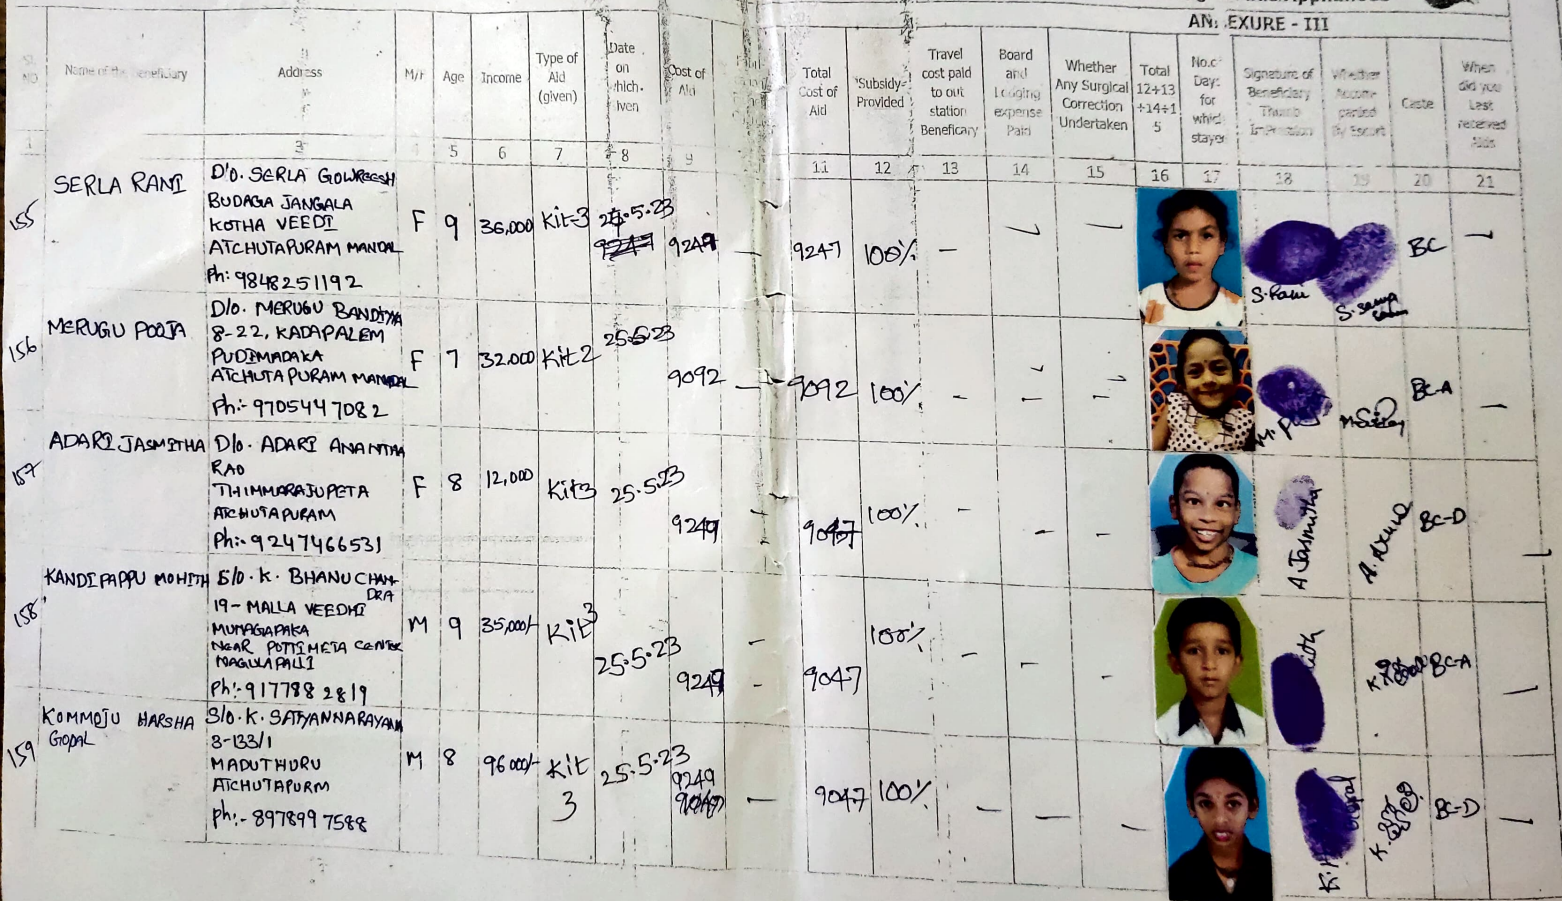 AN: EXURE - III
Name of the beneficiary
Address
M/F
Age
Income
Type of Aid (given)
Date on which given
Cost of Aid
Total Cost of Aid
Subsidy Provided
Travel cost paid to out station Beneficary
Board and Lodging expense Paid
Whether Any Surgical Correction Undertaken
Total 12+13+14+15
No.of Days for which stayed
Signature of Beneficiary Thumb Impression
Whether Accompanied By Escort
Caste
When did you Last received Aids
1 3 4 5 6 7 8 9 11 12 13 14 15 16 17 18 19 20 21
155 SERLA RANI
D/o. SERLA GOWREESH
BUDAGA JANGALA
KOTHA VEEDI
ATCHUTAPURAM MANDAL
Ph: 9848251192
F 9 36,000 Kit-3 25.5.23 9249 — 9247 100% — — — S. Rani BC —
156 MERUGU POOJA
D/o. MERUGU BANDIYA
8-22, KADAPALEM
PUDIMADAKA
ATCHUTAPURAM MANDAL
Ph:- 9705447082
F 7 32,000 Kit 2 25.5.23 9092 — 9092 100% — — — BC-A —
157 ADARI JASMITHA
D/o. ADARI ANANTHA
RAO
THIMMARAJUPETA
ATCHUTAPURAM
Ph:- 9247466531
F 8 12,000 Kit 3 25.5.23 9249 — 9047 100% — — — A. Jasmitha BC-D —
158 KANDIPAPPU MOHITH
S/o. K. BHANU CHAN-
DRA
19- MALLA VEEDHI
MUNAGAPAKA
NEAR POTTIMETA CENTRE
NAGULAPALLI
Ph:- 9177882819
M 9 35,000/- Kit 3 25.5.23 9249 — 9047 100% — — — BC-A —
159 KOMMOJU HARSHA
GOPAL
S/o. K. SATYANNARAYANA
3-133/1
MADUTHURU
ATCHUTAPURM
ph:- 8978997588
M 8 96000/- Kit 3 25.5.23 9249 — 9047 100% — — — BC-D —